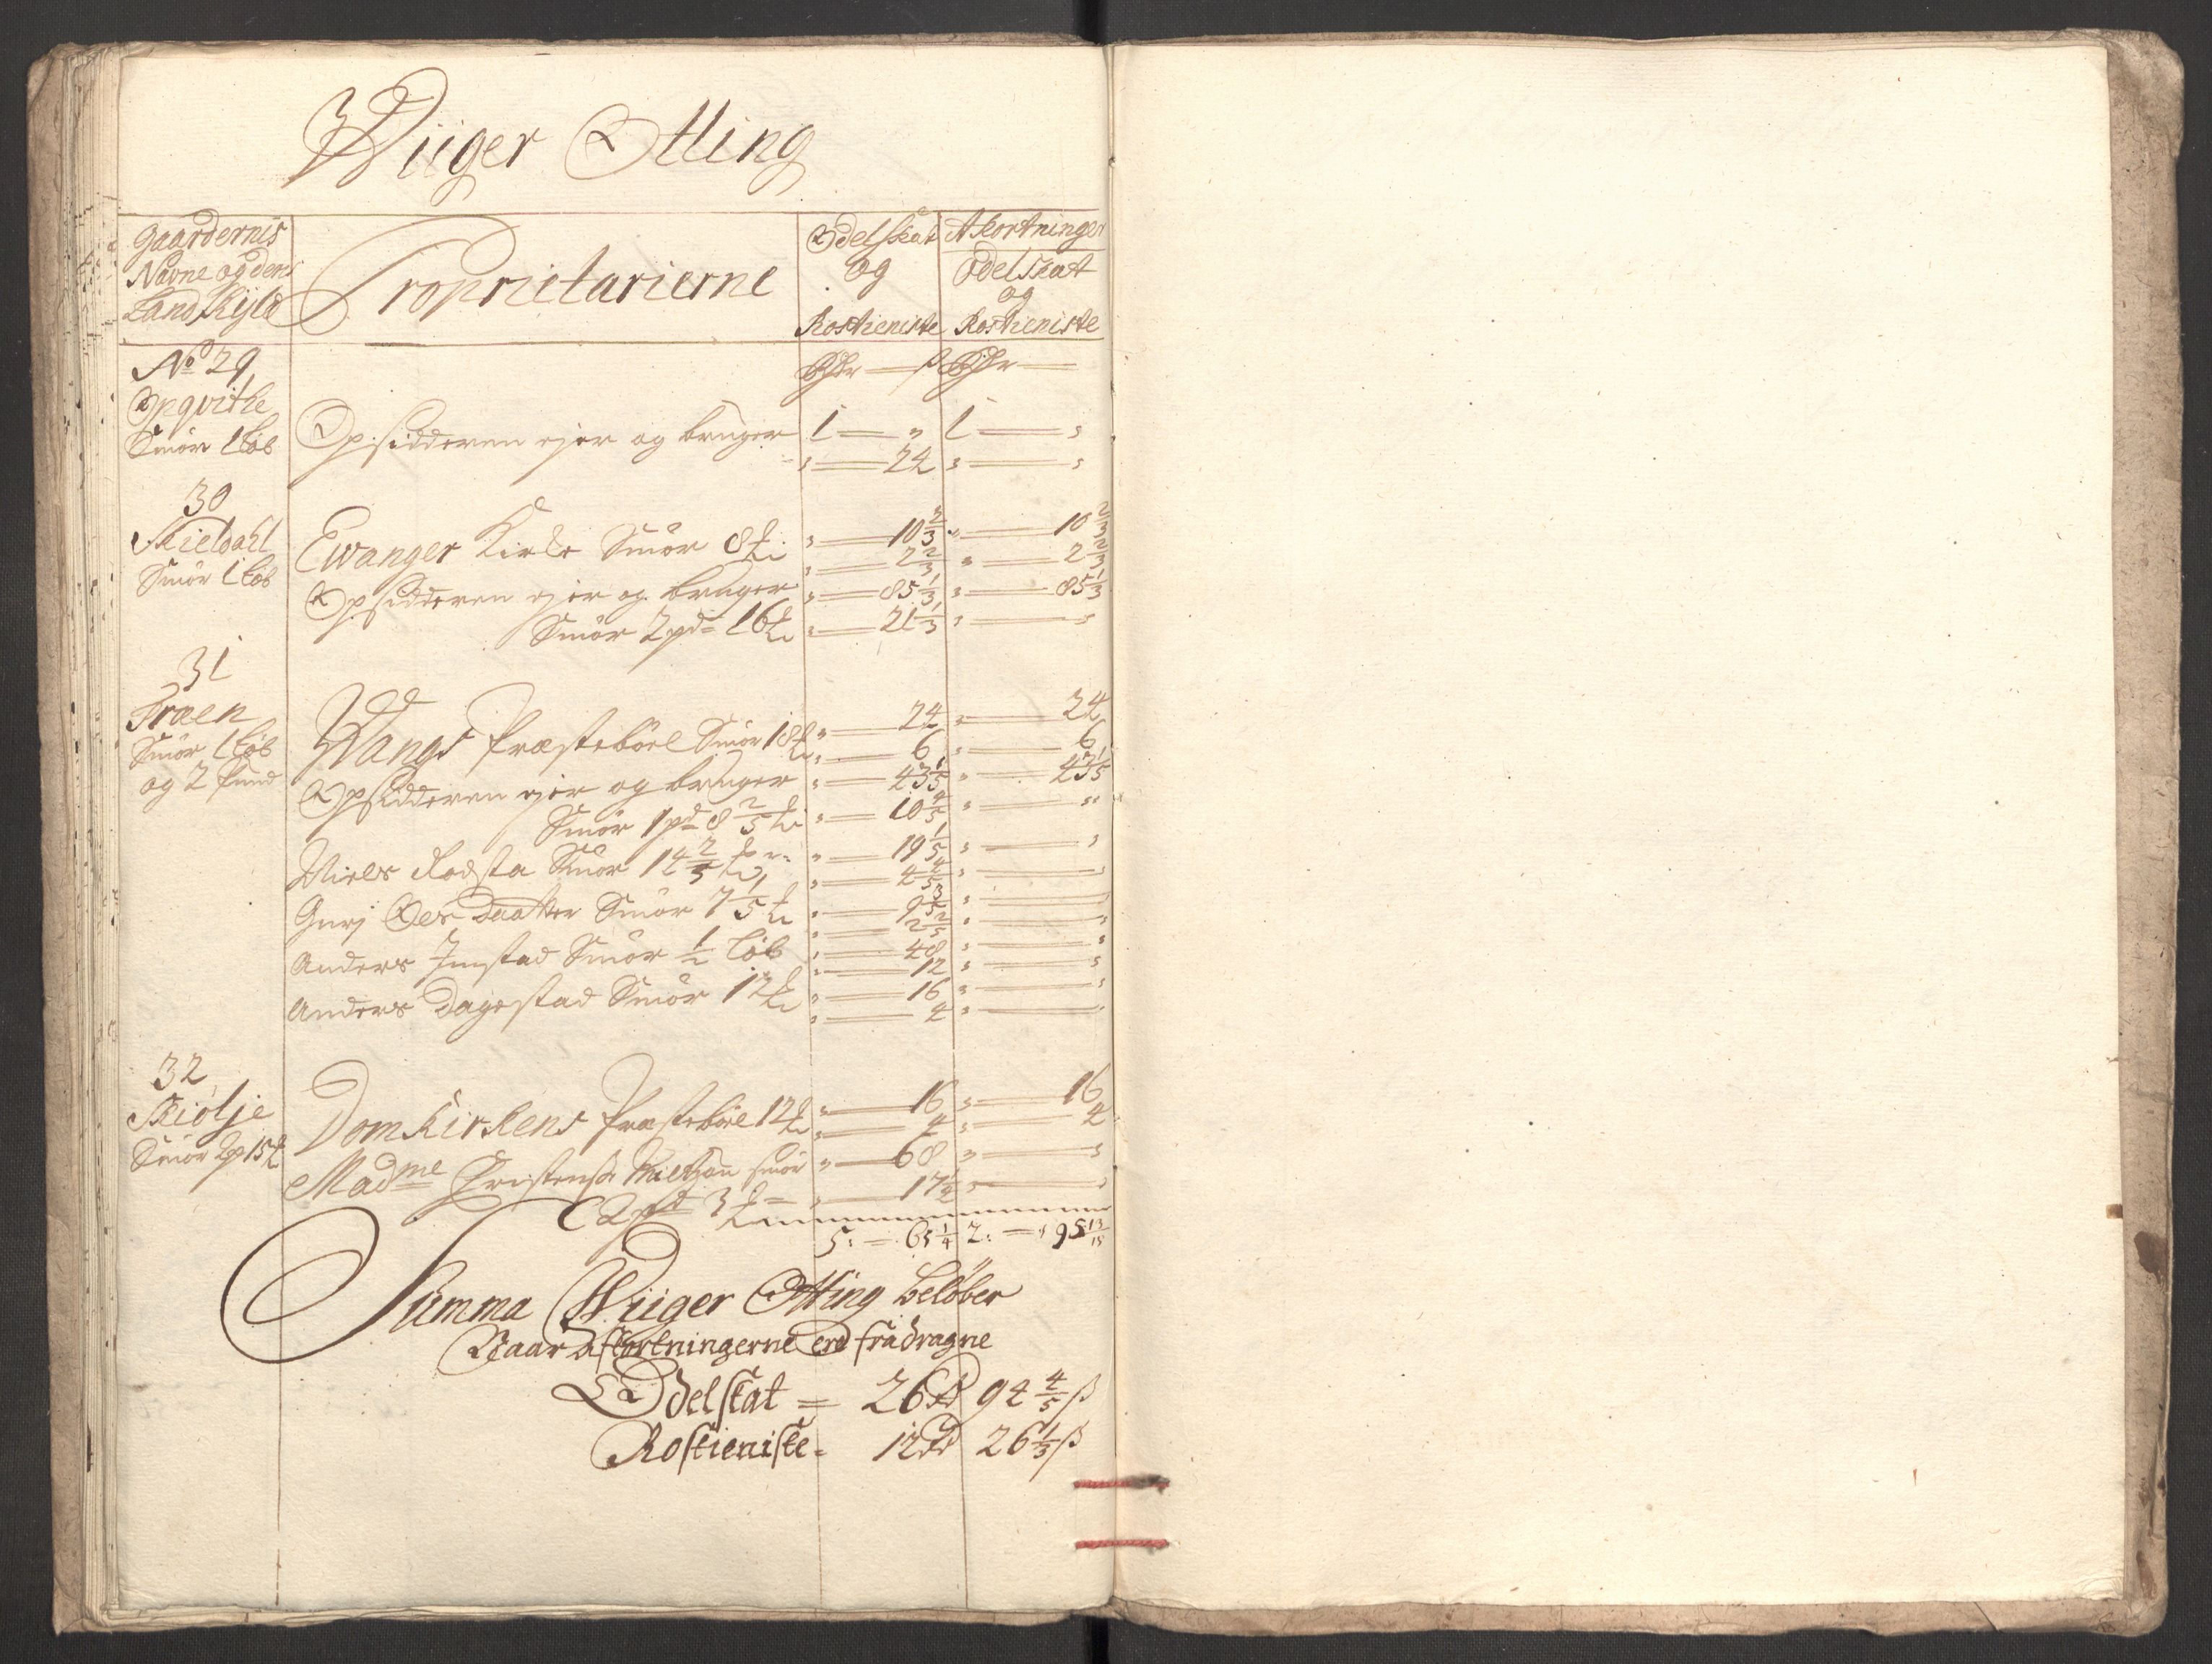 Wiiger Otting
Gaardernis
Navne og dens
Landskyld
Proprietarierne
Odelskat
og
Rostieniste
Afkortninger
Odelskat
og
Rostieniste
No 29
Opqvithe
Smör 1 löb
Opsidderen ejer og bruger 1 — „ 1 — „
„ — 24 „ — „
30
Skieldahl
Smör 1 löb
Ewanger Kirke Smör 8 „ — 10 2/3 „ — 10 2/3
„ — 2 2/3 „ — 2 2/3
Opsidderen ejer og bruger „ — 85 1/3 „ — 85 1/3
Smör 2 pd 16 „ — 21 1/3 „ — „
31
Fræn
Smör 1 löb
og 2 pund
Wangs Præstebôel Smör 18 „ — 24 „ — 24
„ — 6 „ — 6
Opsidderen ejer og bruger „ — 43 1/5 „ — 43 1/5
Smör 1 pd 8 2/5 „ — 10 4/5 „ — „
Niels Rodsta Smör 14 2/5 „ — 19 1/5 „ — „
„ — 4 4/5 „ — „
Gurj Oes Daatter Smör 7 1/5 „ — 9 3/5 „ — „
„ — 2 2/5 „ — „
Anders Jmstad Smör 1/2 löb „ — 48 „ — „
„ — 12 „ — „
Anders Dagestad Smör 12 „ — 16 „ — „
„ — 4 „ — „
32
Skiolje
Smör 2 p 15
DomKirkens Præstebôel 12 „ — 16 „ — 16
„ — 4 „ — 4
Madme Christense Miltzau smör „ — 68 „ — „
2 pd 3 „ — 17 1/4 „ — „
5: — 65 1/4 2: — 95 13/15
Summa Wiiger Otting belöber
Naar afkortningerne ere fradragne
Odelskat = 26 Rd 94 4/5 ß
Rostieniste = 12 Rd 26 1/3 ß